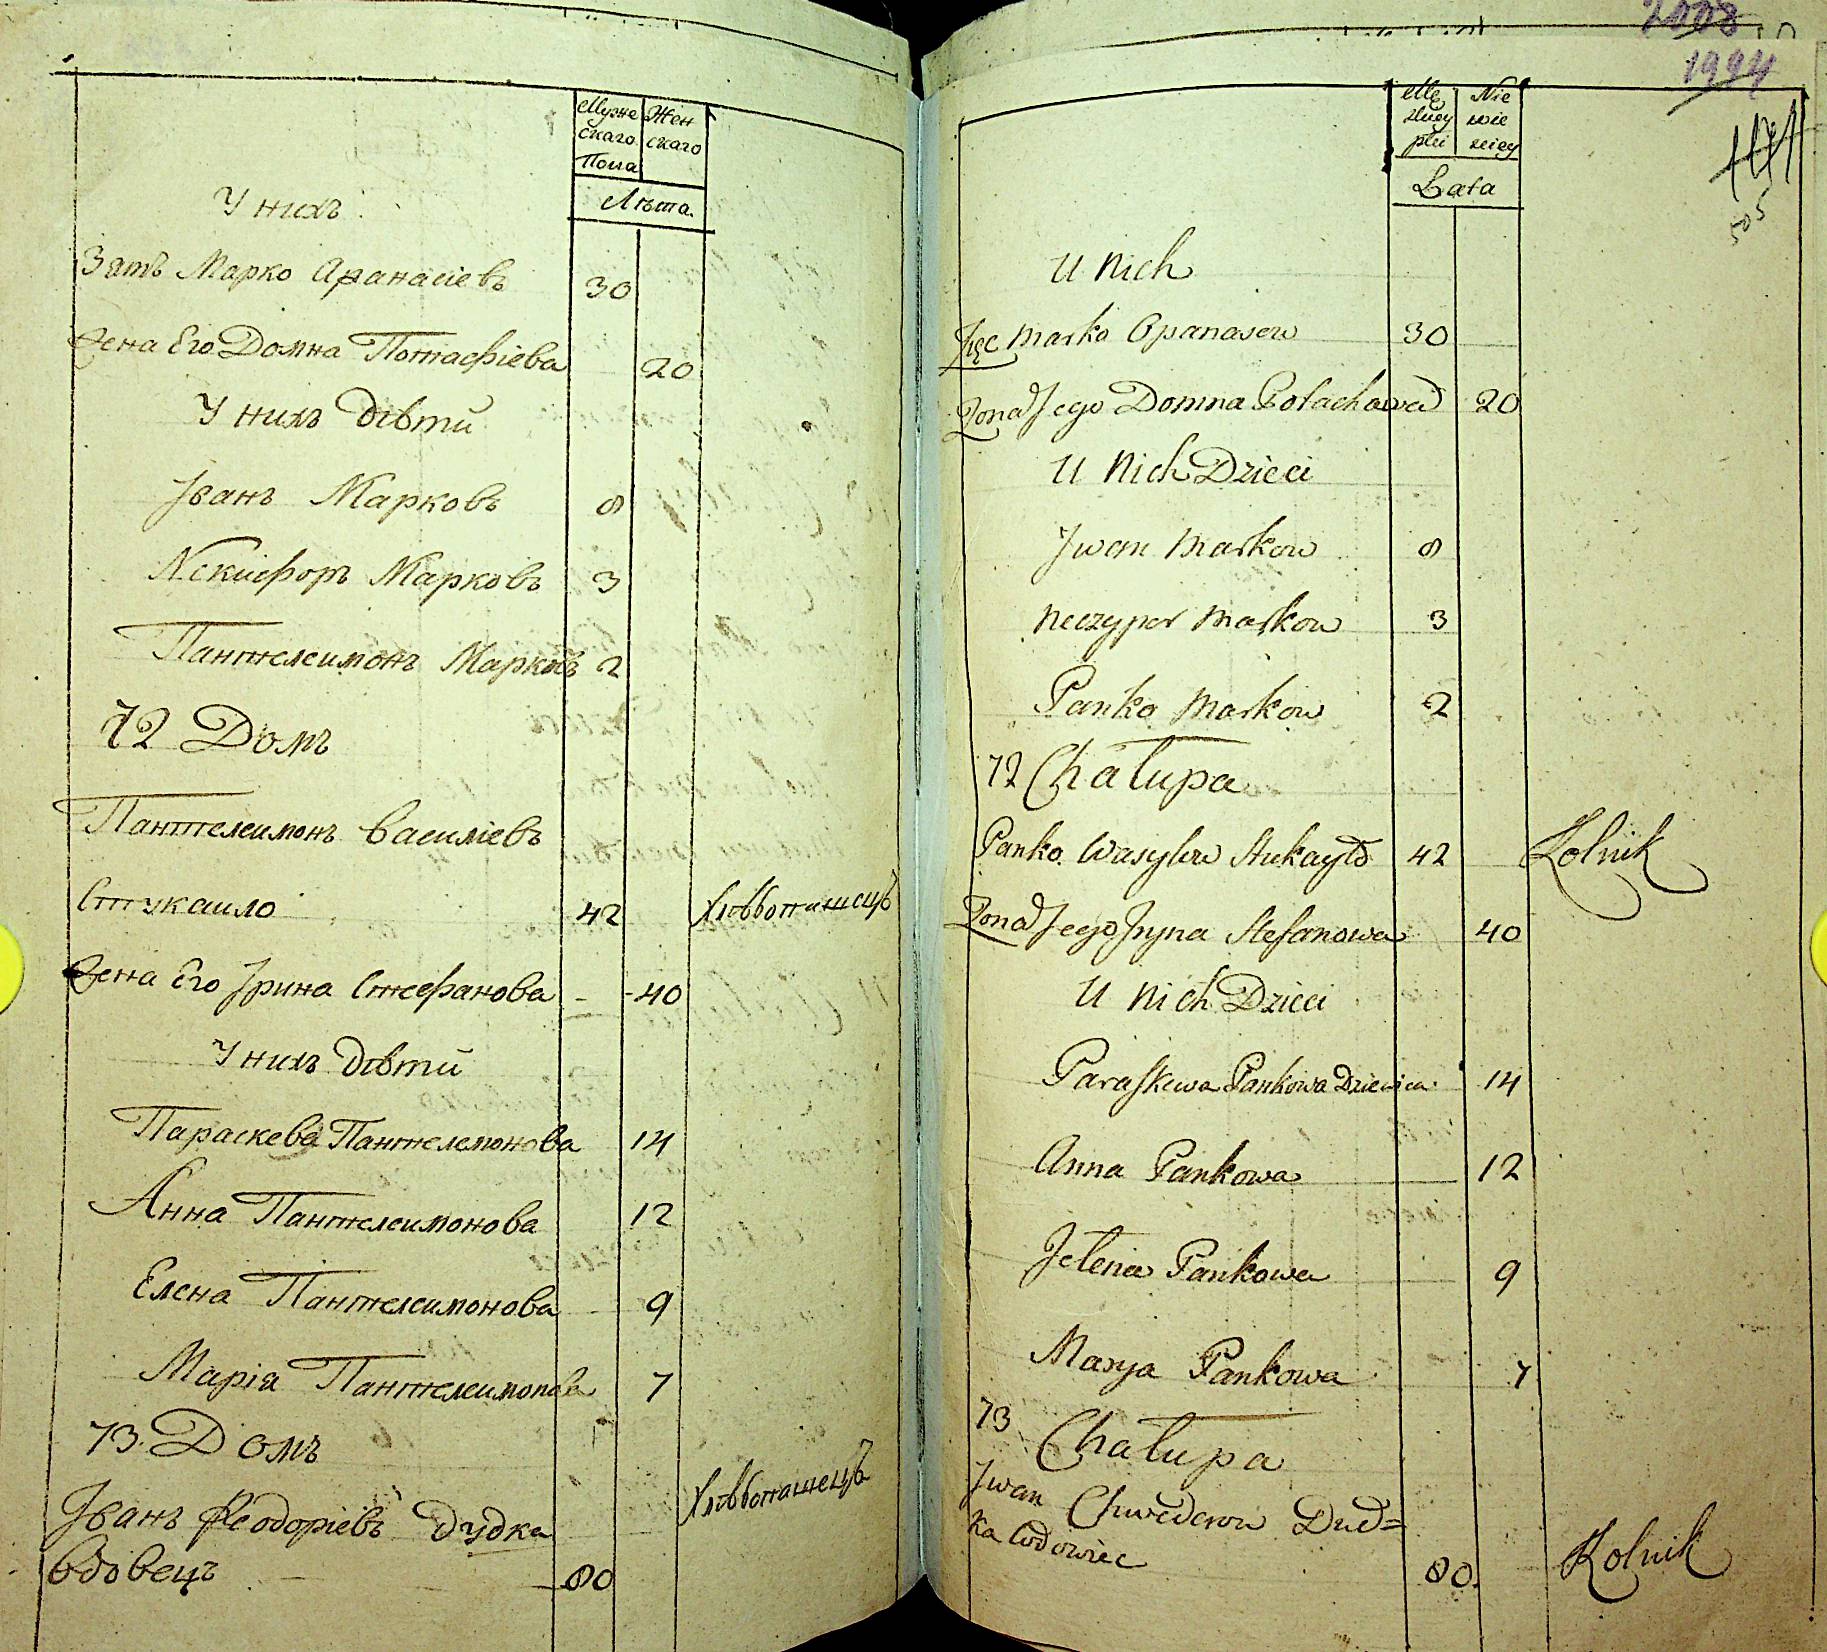 Муже Жен
скаго скаго
Пола
Лѣта.
У нихъ
Зять Марко Афанасіевъ 30
Жена Его Домна Потафіева 20
У нихъ дѣти
Іванъ Марковъ 8
Никифоръ Марковъ 3
Пантелеимонъ Марковъ 2
72 Домъ
Пантелеимонъ Василіевъ
Стукаило 42 Хлѣбопашецъ
Жена Его Ірина Стефанова - - 40
У нихъ дѣти
Параскева Пантелемонова 14
Анна Пантелеимонова 12
Елена Пантелеимонова 9
Марія Пантелеимонова 7
73. Домъ
Іванъ Феодоріевъ Дудка Хлѣбопашецъ
вдовецъ 80
2008
1994
505
Mę Nie
zkiey wie
płci sciey
Lata
U Nich
Zięc Marko Opanasew 30
Zona Jego Domna Potachowa 20
U Nich Dzieci
Jwan Markow 8
Neczypor Markow 3
Panko Markow 2
72 Chałupa
Panko Wasylew Stukayło 42 Rolnik
Zona Jego Jryna Stefanowa 40
U Nich Dzieci
Paraskewa Pankowa Dziewica 14
Anna Pankowa 12
Jełena Pankowa 9
Marya Pankowa 7
73 Chałupa
Jwan Chwederow Dud=
ka Wdowiec 80. Rolnik